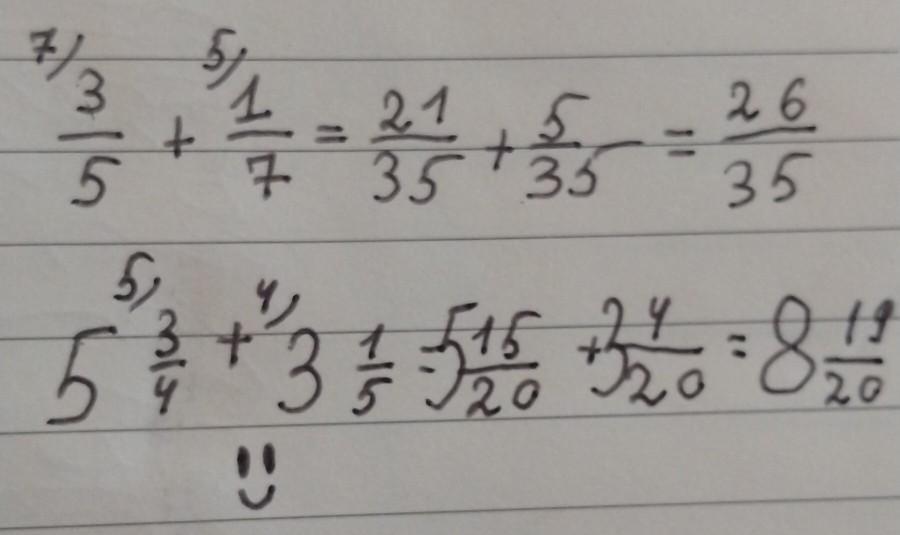 7) 3/5 + 5) 1/7 = 21/35 + 5/35 = 26/35
5 5) 3/4 + 4) 3 1/5 = 5 15/20 + 3 4/20 = 8 19/20